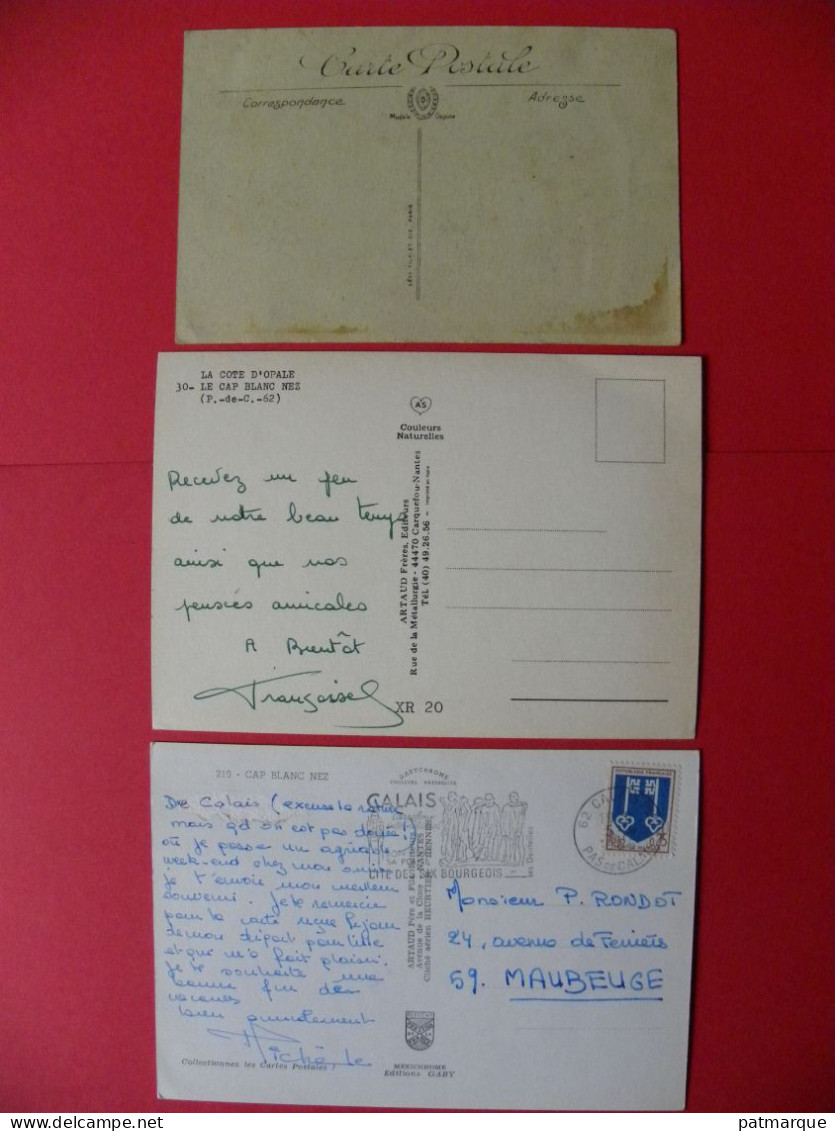 Carte Postale
Correspondance
Adresse
Modèle Déposé
LÉVY FILS ET CIE, PARIS
LA COTE D'OPALE
30- LE CAP BLANC NEZ
(P.-de-C.-62)
AS
Couleurs
Naturelles
Recevez un peu
de notre beau temps
ainsi que nos
pensées amicales
A Bientôt
Françoise
ARTAUD Frères, Editeurs
Rue de la Métallurgie - 44470 Carquefou-Nantes
Tél. (40) 49.26.56 -
XR 20
219 - CAP BLANC NEZ
GABYCHROME
CALAIS
CITÉ DES SIX BOURGEOIS
62 CA
PAS DE CALAIS
REPUBLIQUE FRANÇAISE
De Calais (excuse la rature
mais qd on est pas douée!)
où je passe un agréable
week-end chez mon
je t'envoie mon meilleur
souvenir. Je te remercie
pour la carte reçue
de mon départ pour
et qui m'a fait plaisir.
Je te souhaite une
bonne fin de
vacances
bien amicalement
Michèle
ARTAUD Père et Fils
Avenue de la Close - NANTES
Cliché aérien HEURTIER - RENNES
Monsieur P. RONDOT
24, avenue de
59. MAUBEUGE
Collectionnez les Cartes Postales !
MEXICHROME
Editions GABY
delcampe.net
patmarque